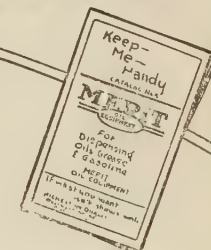 Keep-
Me-
Handy
CATALOG No5
MERIT
OIL
EQUIPMENT
For
Dispensing
Oils Grease
& Gasoline
MERIT
OIL EQUIPMENT
If what you want
is not shown